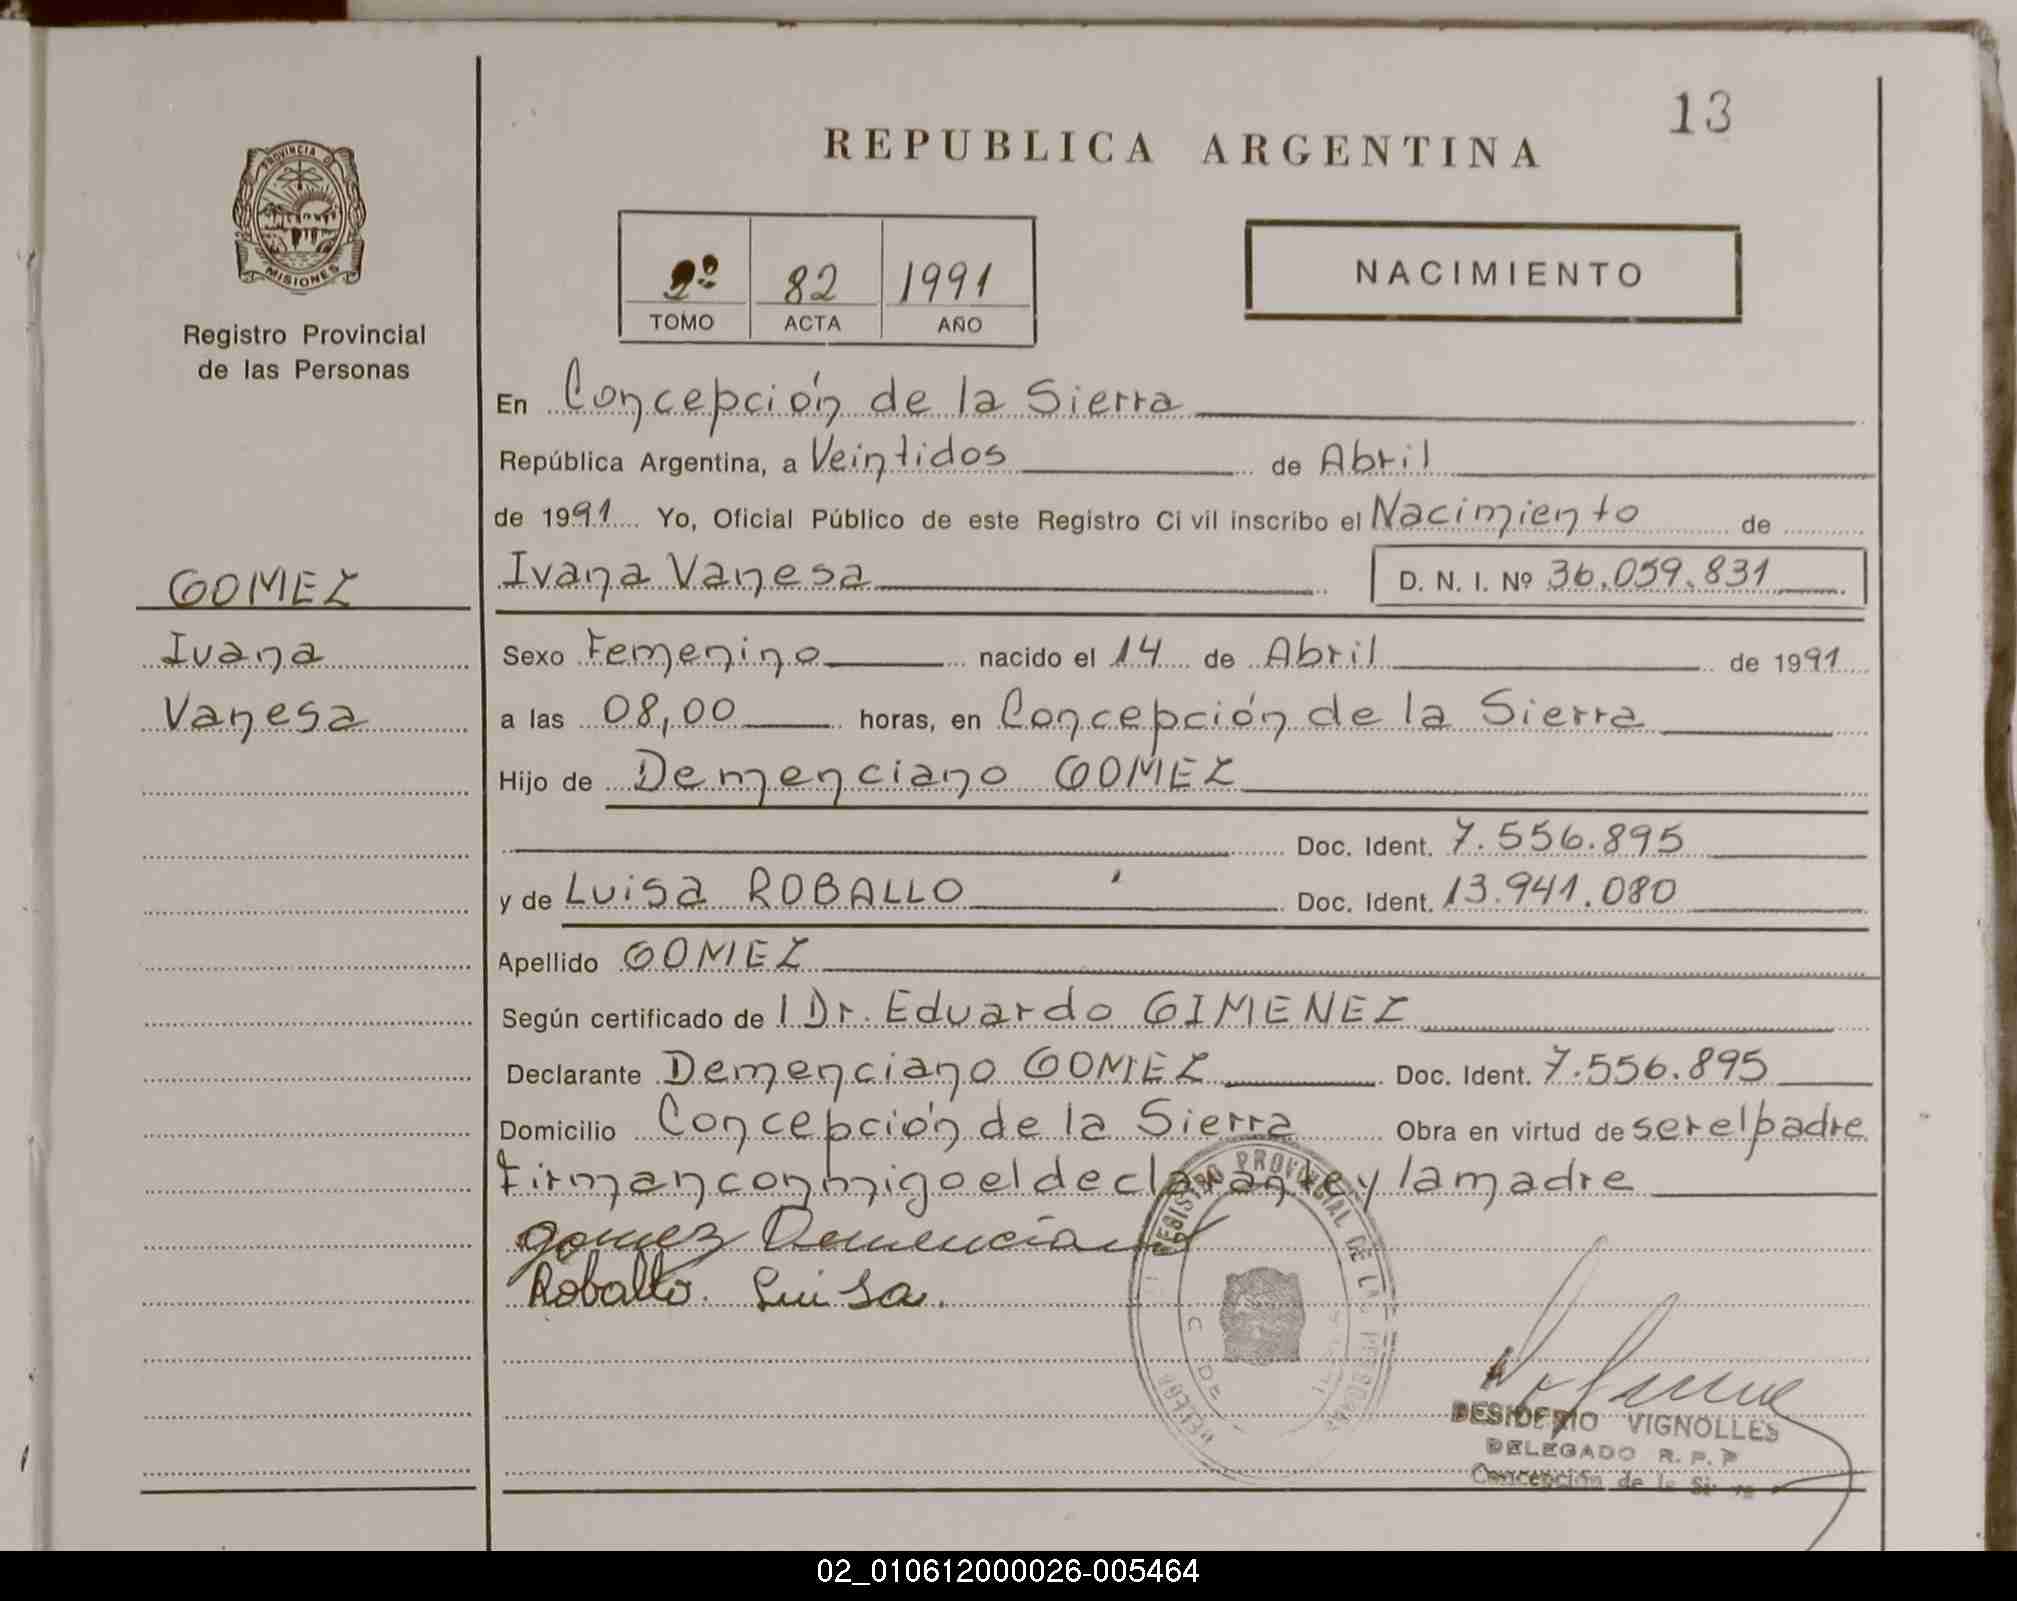 13
REPUBLICA ARGENTINA
PROVINCIA D
MISIONES
Registro Provincial
de las Personas
2º 82 1991
TOMO ACTA AÑO
NACIMIENTO
En Concepción de la Sierra
República Argentina, a Veintidos de Abril
de 1991 Yo, Oficial Público de este Registro Ci vil inscribo el Nacimiento de
Ivana Vanesa D. N. I. Nº 36.059.831
GOMEZ
Ivana
Vanesa
Sexo Femenino nacido el 14 de Abril de 1991
a las 08,00 horas, en Concepción de la Sierra
Hijo de Demenciano GOMEZ
Doc. Ident. 7.556.895
y de Luisa ROBALLO Doc. Ident. 13.941.080
Apellido GOMEZ
Según certificado de l Dr. Eduardo GIMENEZ
Declarante Demenciano GOMEZ Doc. Ident. 7.556.895
Domicilio Concepción de la Sierra Obra en virtud de ser el padre
Firman conmigo el declarante y la madre
gomez Demenciano
Roballo. Luisa.
REGISTRO PROVINCIAL DE LAS PERSONAS
DESIDERIO VIGNOLLES
DELEGADO R. P. P
Concepción de la Sierra
02_010612000026-005464